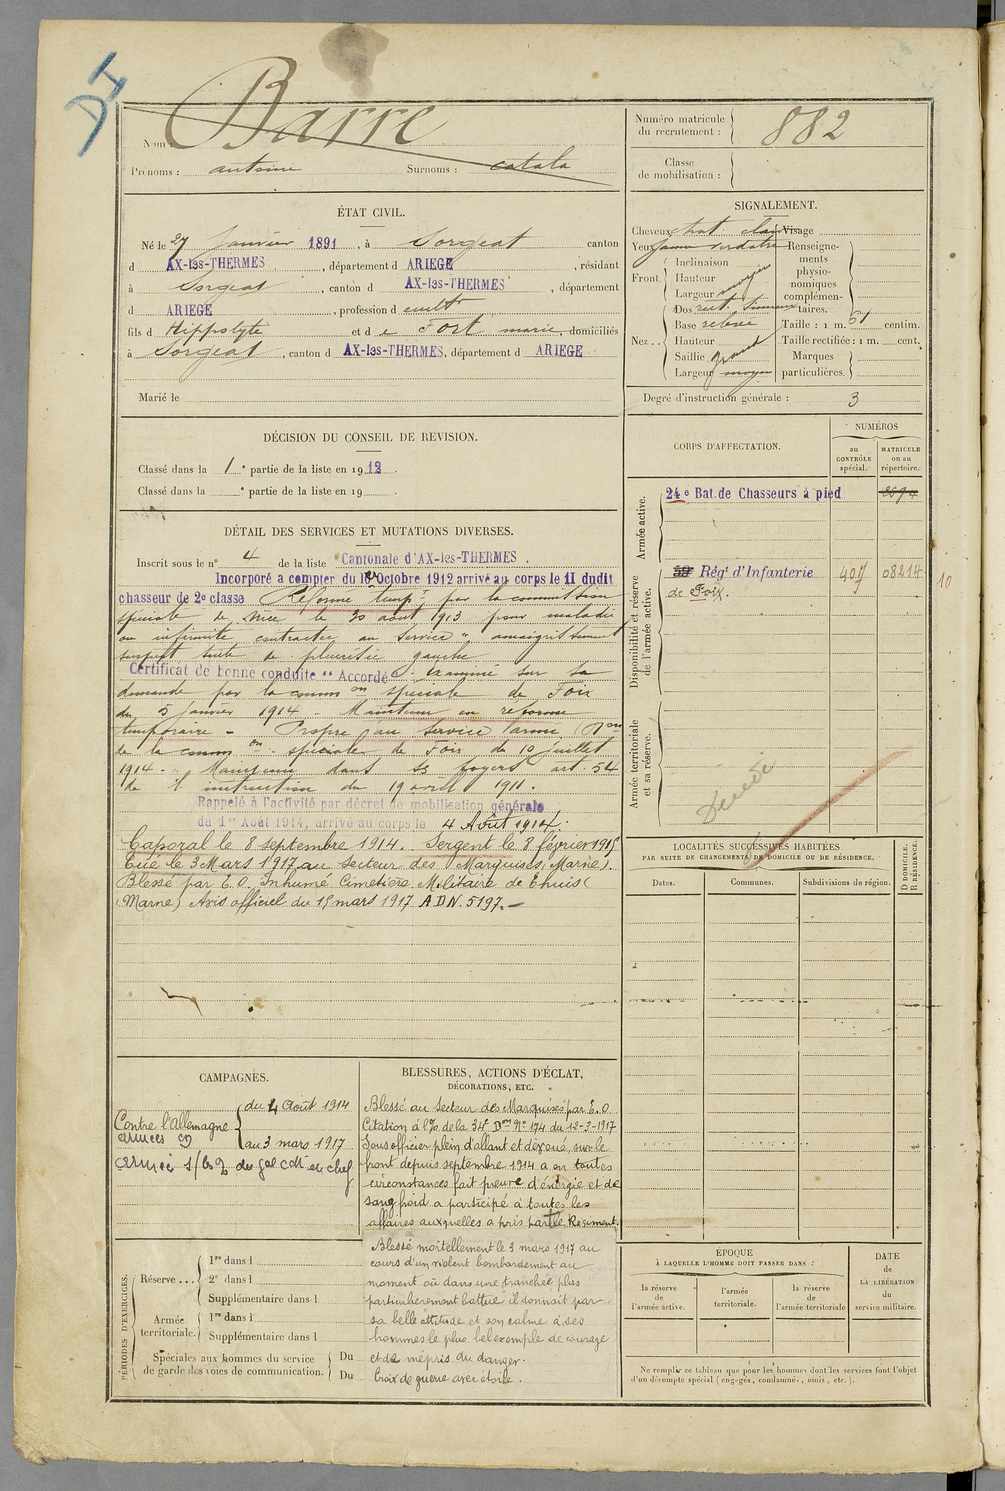 DI
Nom : Barre
Prénoms : antoine Surnoms : catala
Numéro matricule
du recrutement : 882
Classe
de mobilisation :
ÉTAT CIVIL.
Né le 27 Janvier 1891, à Sorgeat canton
d AX-les-THERMES, département d ARIEGE, résidant
à Sorgeat, canton d AX-les-THERMES, département
d ARIEGE, profession d cult
fils d Hippolyte et de Fort marie, domiciliés
à Sorgeat, canton d AX-les-THERMES, département d ARIEGE
Marié le
SIGNALEMENT.
Cheveux chat clair Visage
Yeux jaune verdatre Renseigne-
ments
physio-
nomiques
complémen-
taires.
Front. Inclinaison
Hauteur
Largeur moyen
Nez .. Dos rect. Sinueux
Base relevé Taille : 1 m. 61 centim.
Hauteur Taille rectifiée : 1 m. cent.
Saillie grand Marques
Largeur moyen particulières.
Degré d'instruction générale : 3
DÉCISION DU CONSEIL DE REVISION.
Classé dans la 1e partie de la liste en 1912.
Classé dans la e partie de la liste en 19 .
DÉTAIL DES SERVICES ET MUTATIONS DIVERSES.
Inscrit sous le n° 4 de la liste Cantonale d'AX-les-THERMES.
Incorporé a compter du 10 Octobre 1912 arrivé au corps le 11 dudit
chasseur de 2e classe Réformé temp. par la commission
spéciale de Nice le 20 août 1913 pour maladie
ou infirmité contractée au service " amaigrissement
suspect suite de pleurésie gauche
Certificat de bonne conduite " Accordé ". Examiné sur sa
demande par la common spéciale de Foix
du 5 Janvier 1914 - Maintenu en réforme
temporaire - Propre au service armé (Don
de la common spéciale de Foix du 10 juillet
1914 - Maintenu dans ses foyers art. 54
de l'instruction du 19 avril 1911.
Rappelé à l'activité par décret de mobilisation générale
du 1er Août 1914, arrivé au corps le 4 Août 1914.
Caporal le 8 septembre 1914. Sergent le 8 février 1915
Tué le 3 Mars 1917 au secteur des Marquises (Marne).
Blessé par E.O. Inhumé Cimetière Militaire de Thuisy
(Marne) Avis officiel du 15 mars 1917 A D N. 5197.-
CORPS D'AFFECTATION.
NUMÉROS
au
CONTRÔLE
spécial.
MATRICULE
ou au
répertoire.
Armée active.
24e Bat. de Chasseurs à pied
Disponibilité et réserve
de l'armée active.
Régt d'Infanterie 407 08214 10
de Foix.
Armée territoriale
et sa réserve.
Décédé
LOCALITÉS SUCCESSIVES HABITÉES
PAR SUITE DE CHANGEMENTS DE DOMICILE OU DE RÉSIDENCE.
Dates. Communes. Subdivisions de région.
D DOMICILE.
R RÉSIDENCE.
CAMPAGNES.
Contre l'Allemagne du 4 Août 1914
au 3 mars 1917
BLESSURES, ACTIONS D'ÉCLAT,
DÉCORATIONS, ETC.
Blessé au secteur des Marquises par E.O.
Citation à l'O de la 34e Don No 174 du 12-3-1917
Sous officier plein d'allant et dévoué, sur le
front depuis septembre 1914 a en toutes
circonstances fait preuve d'énergie et de
sang froid a participé à toutes les
affaires auxquelles a pris part le Régiment.
Blessé mortellement le 3 mars 1917 au
cours d'un violent bombardement au
moment où dans une tranchée plus
particulièrement battue il donnait par
sa belle attitude et son calme à ses
hommes le plus bel exemple de courage
et de mépris du danger.
Croix de guerre avec étoile.
PÉRIODES D'EXERCICES.
Réserve ... 1re dans l
2e dans l
Supplémentaire dans l
Armée
territoriale. 1re dans l
Supplémentaire dans l
Spéciales aux hommes du service
de garde des voies de communication. Du
Du
ÉPOQUE
À LAQUELLE L'HOMME DOIT PASSER DANS :
la réserve
de
l'armée active.
l'armée
territoriale.
la réserve
de
l'armée territoriale
DATE
de
LA LIBÉRATION
du
service militaire.
Ne remplir ce tableau que pour les hommes dont les services font l'objet
d'un décompte spécial (engagés, condamnés, omis, etc.).